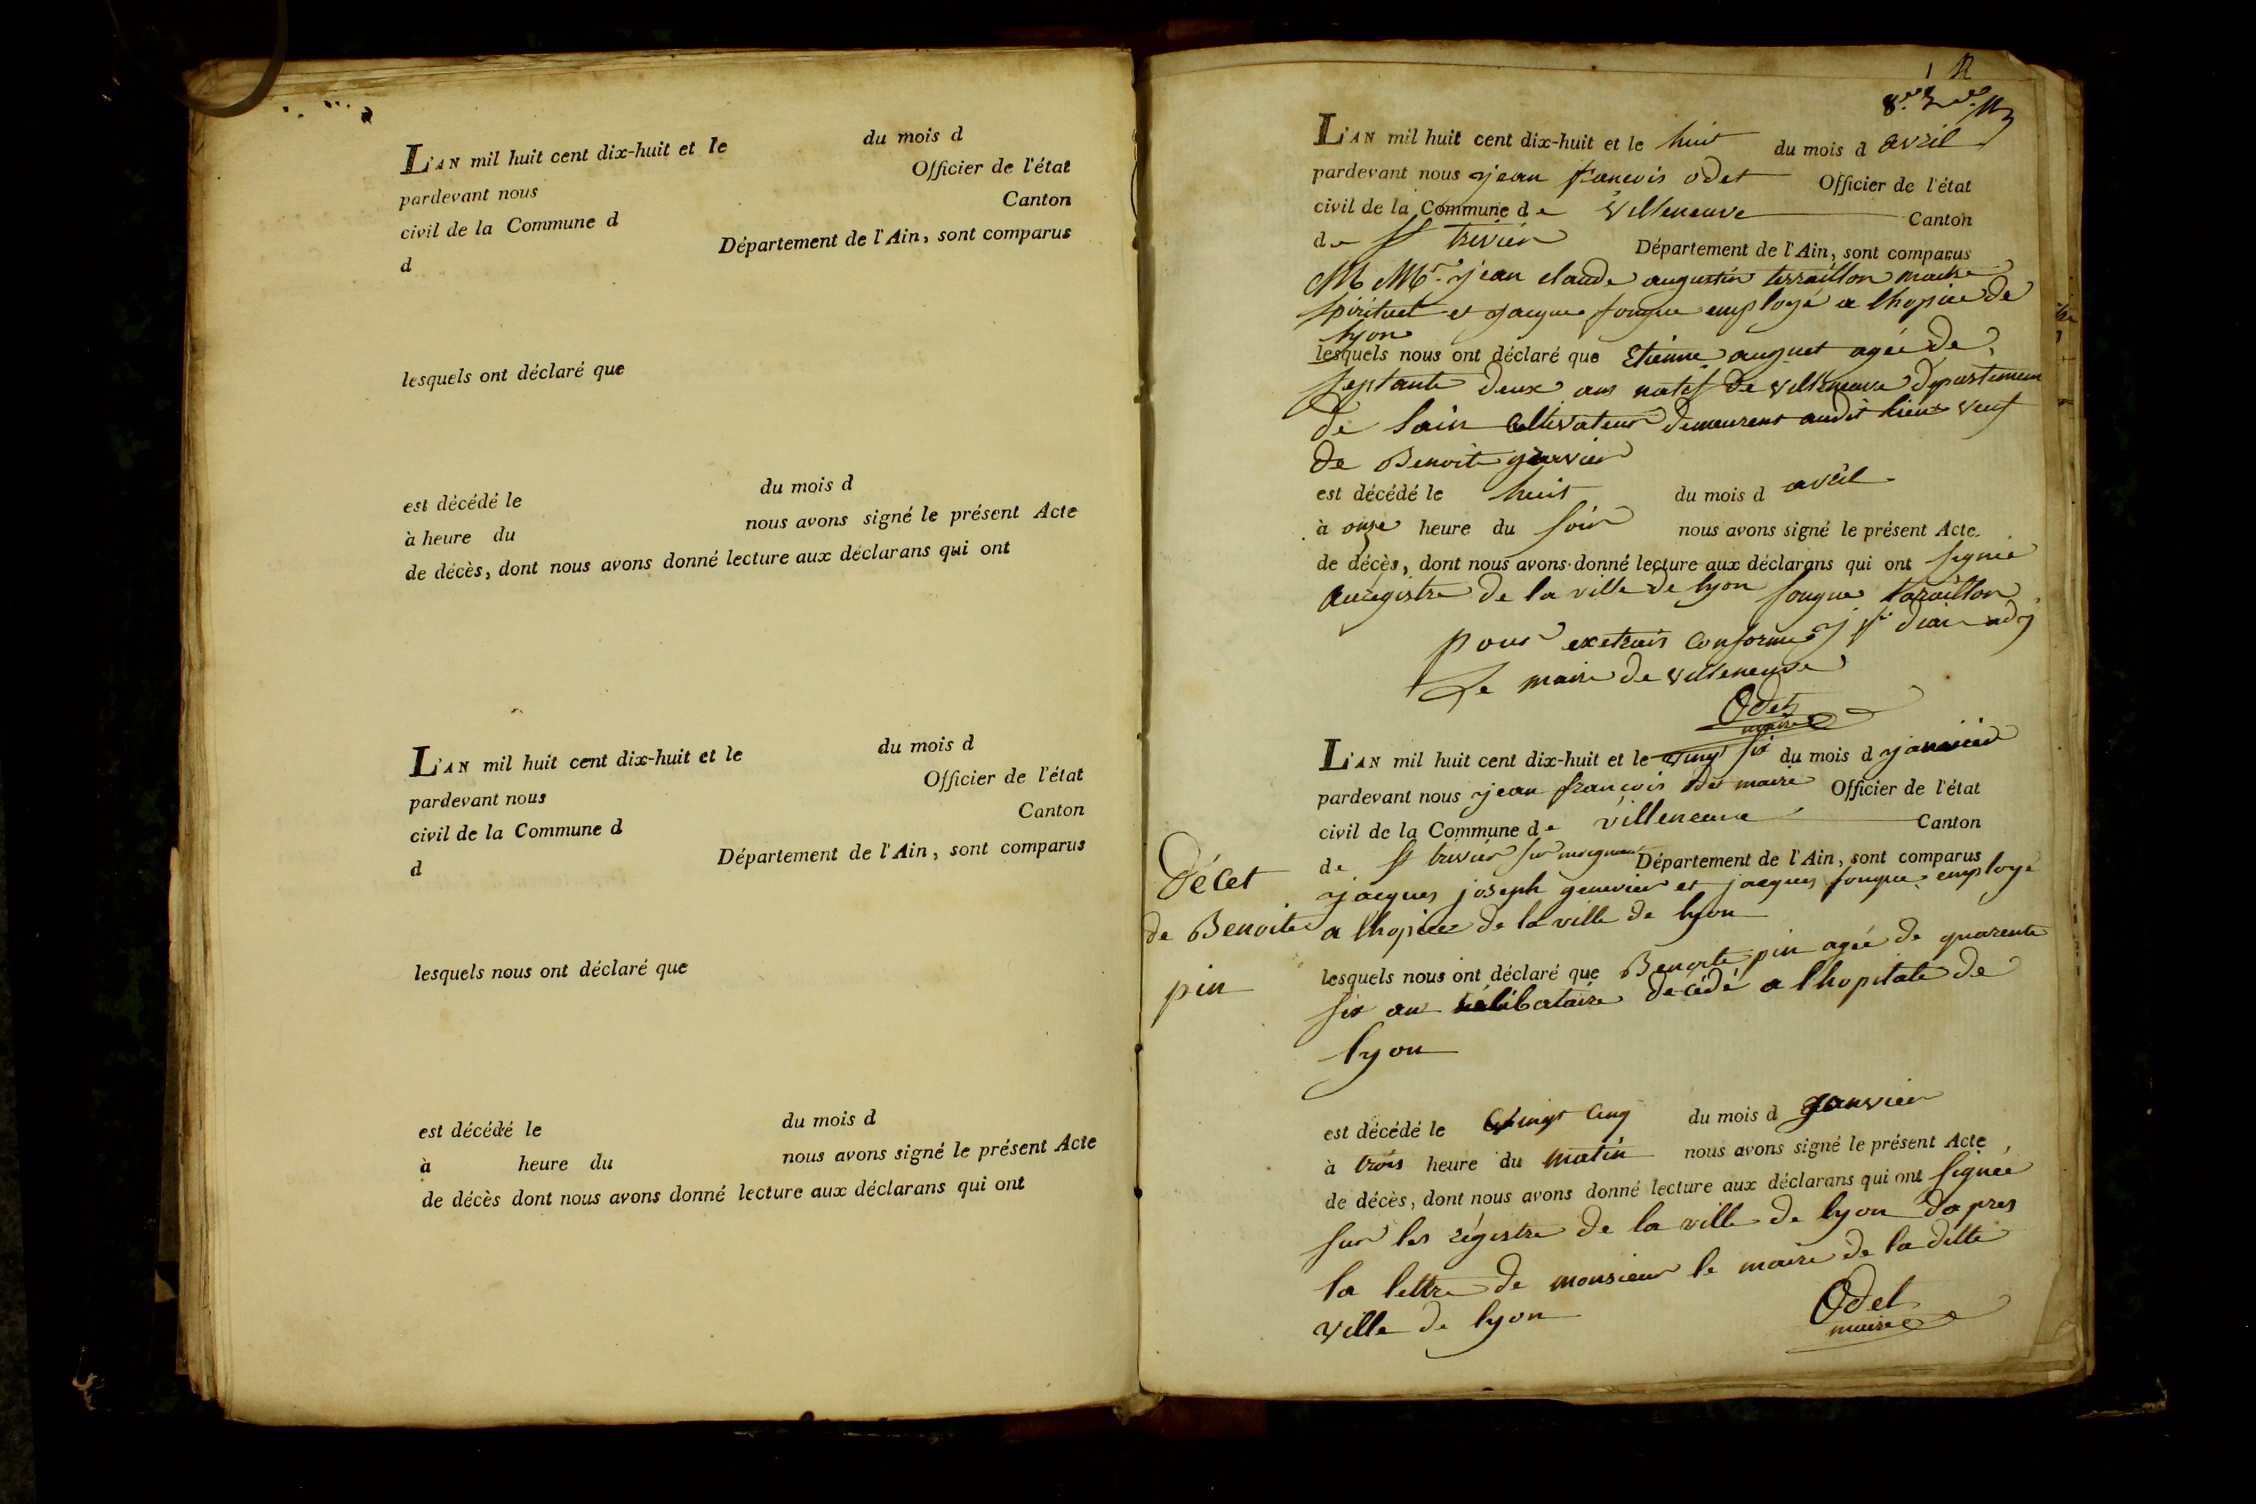 L'AN mil huit cent dix-huit et le du mois d
pardevant nous Officier de l'état
civil de la Commune d Canton
d Département de l'Ain, sont comparus
lesquels ont déclaré que
est décédé le du mois d
à heure du nous avons signé le présent Acte
de décès, dont nous avons donné lecture aux déclarans qui ont
L'AN mil huit cent dix-huit et le du mois d
pardevant nous Officier de l'état
civil de la Commune d Canton
d Département de l'Ain, sont comparus
lesquels nous ont déclaré que
est décédé le du mois d
à heure du nous avons signé le présent Acte
de décès dont nous avons donné lecture aux déclarans qui ont
L'AN mil huit cent dix-huit et le huit du mois d avril
pardevant nous jean francois odet Officier de l'état
civil de la Commune de Villeneuve Canton
de St trivier Département de l'Ain, sont comparus
jean claude augustin terraillon
spirituel et jacque fougue employé a lhopice de
lyon
lesquels nous ont déclaré que Etienne auguet agée de
septante deux ans natif de villeneuve departement
de lain cultivateur demeurent audit lieux veuf
de Benoite
est décédé le huit du mois d avril
à onze heure du soir nous avons signé le présent Acte
de décès, dont nous avons donné lecture aux déclarans qui ont signée
au registre de la ville de lyon fougue taraillon
pour exetrais conforme
Le maire de villeneuve
Odet
maire
L'AN mil huit cent dix-huit et le vingt six du mois d janvier
pardevant nous jean françois odet maire Officier de l'état
civil de la Commune de villeneuve Canton
de St trivier sur moignans Département de l'Ain, sont comparus
jacques joseph genevier et jacques fougue employé
a lhopice de la ville de lyon
Décet
de Benoite
pin
lesquels nous ont déclaré que Benoite pin agée de quarente
six an célibataire décédé a lhopitale de
lyon
est décédé le vingt cinq du mois d janvier
à trois heure du matin nous avons signé le présent Acte
de décès, dont nous avons donné lecture aux déclarans qui ont signée
sur les régistre de la ville de lyon dapres
la lettre de monsieur le maire de la ditte
ville de lyon
Odet
maire